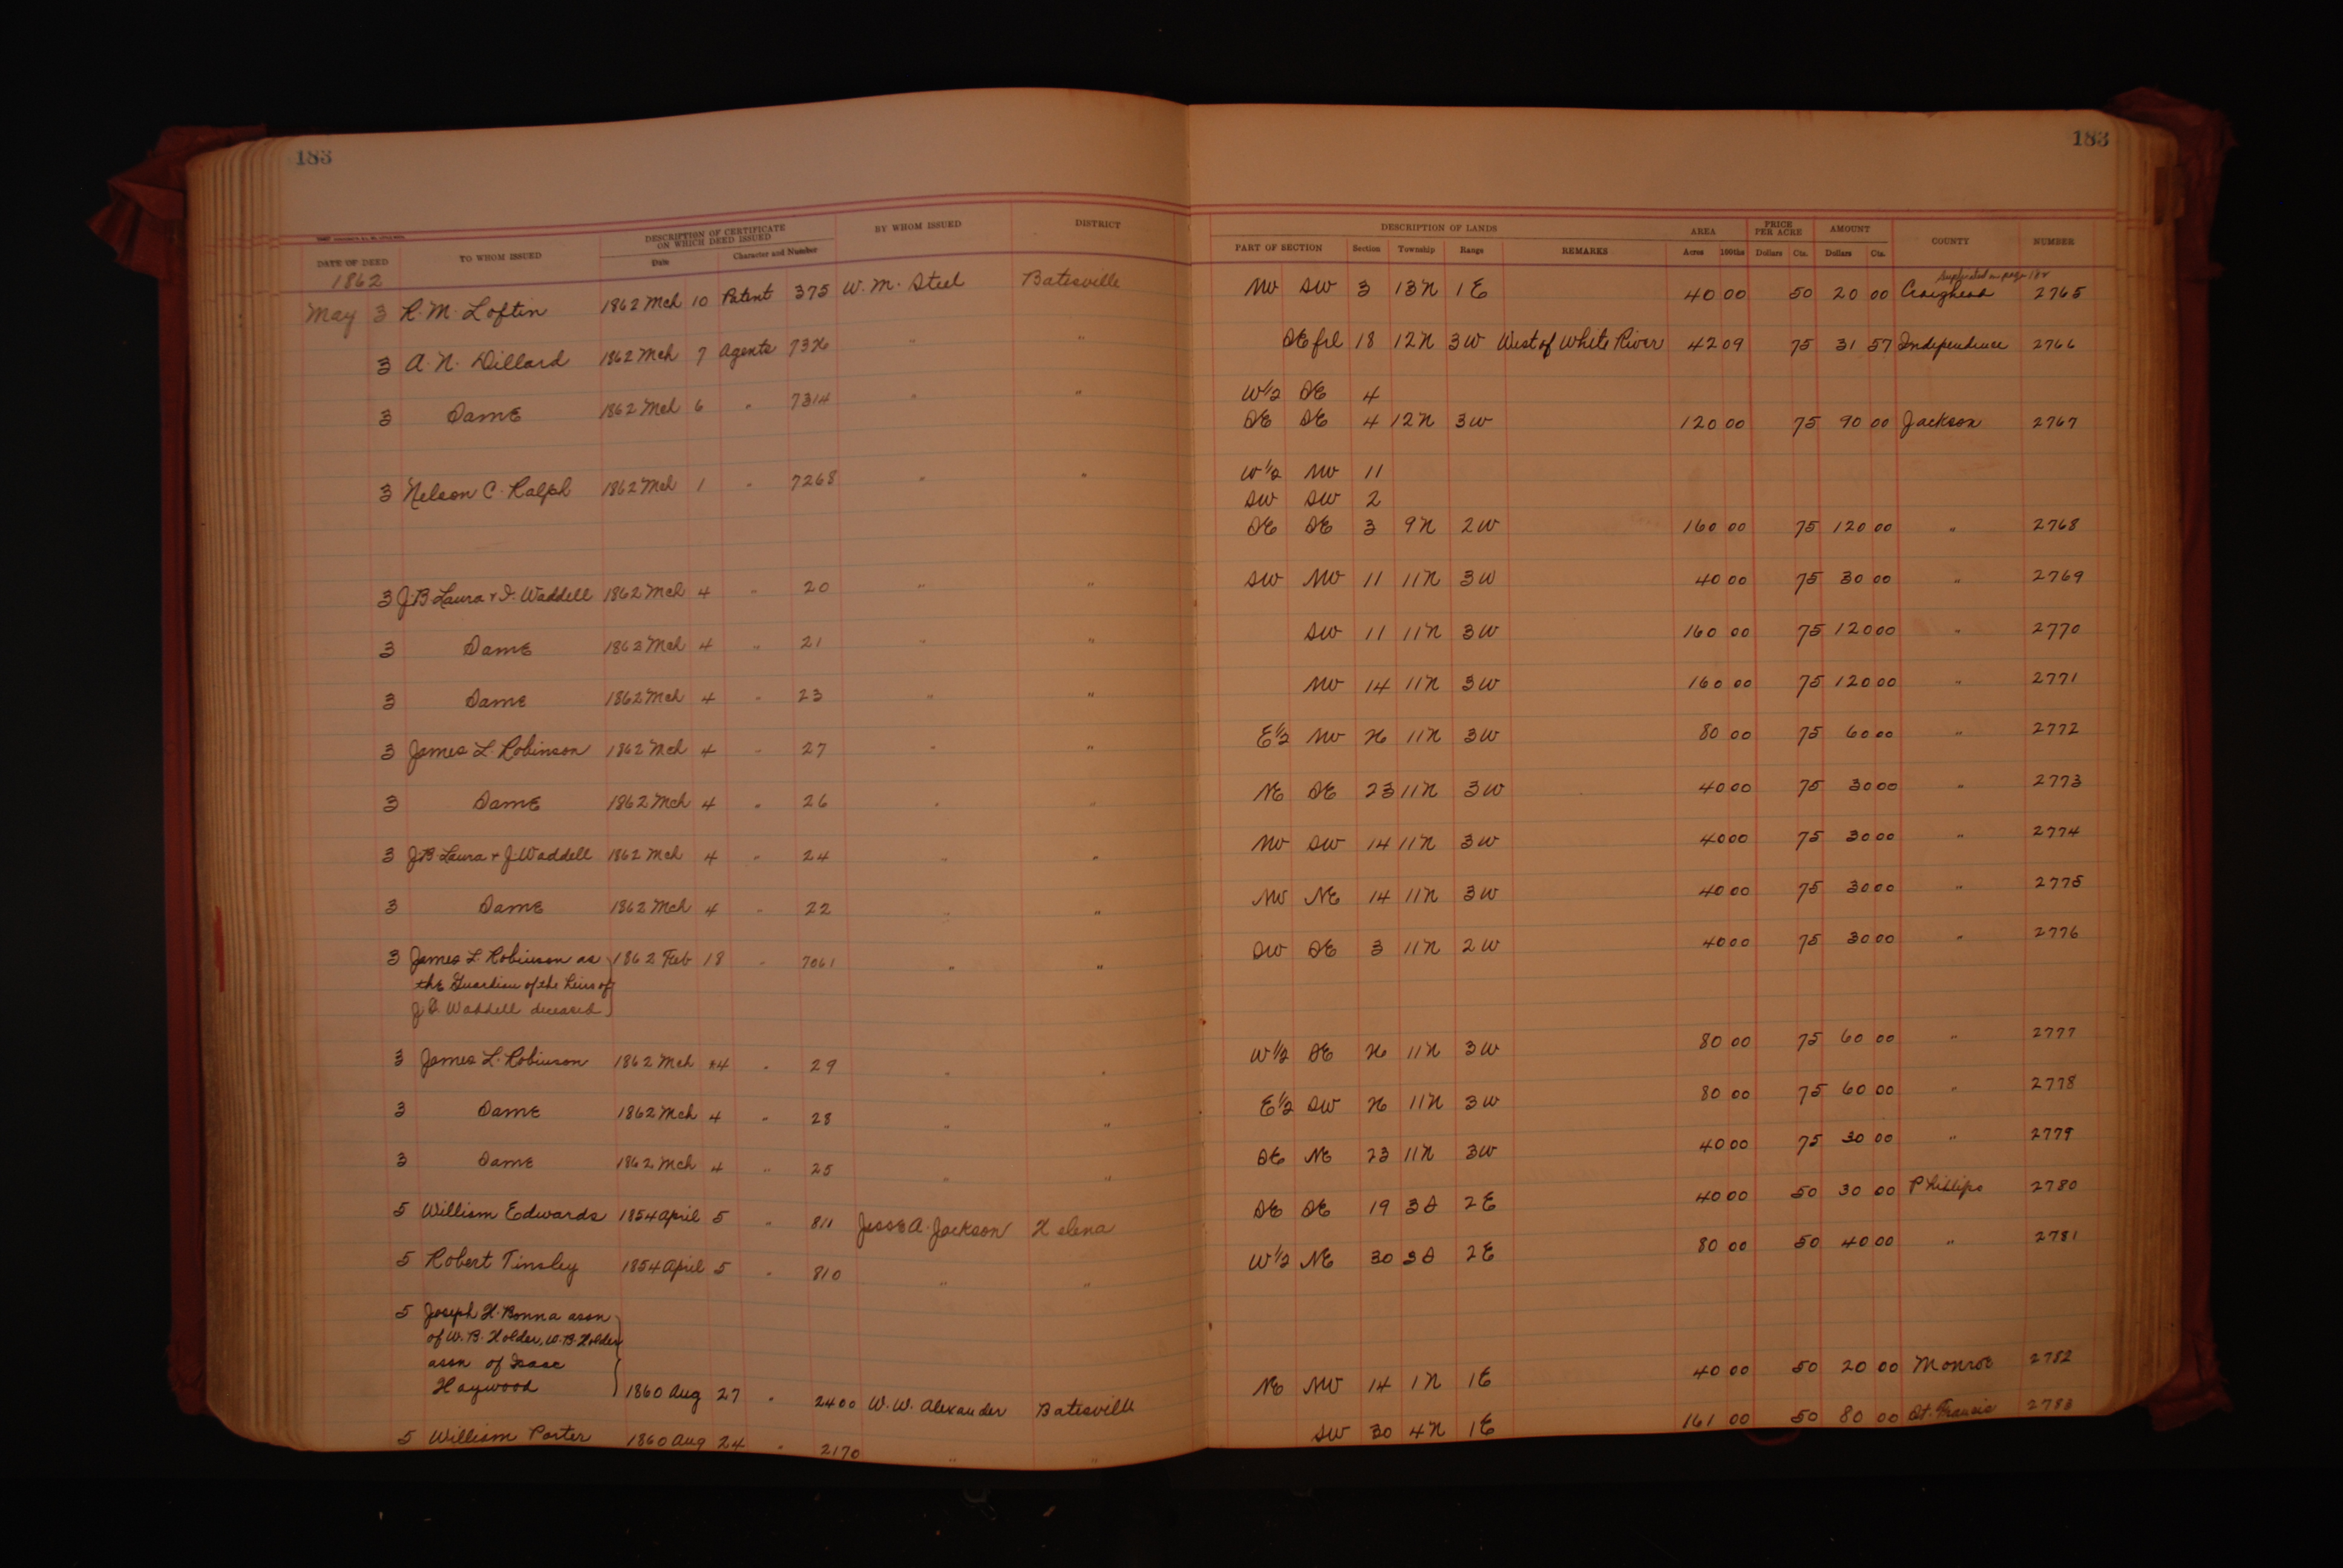 183
183
DATE OF DEED TO WHOM ISSUED DESCRIPTION OF CERTIFICATE ON WHICH DEED ISSUED BY WHOM ISSUED DISTRICT DESCRIPTION OF LANDS AREA PRICE PER ACRE AMOUNT COUNTY NUMBER
Date Character and Number PART OF SECTION Section Township Range REMARKS Acres 100ths Dollars Cts. Dollars Cts.
1862
May 3 R. M. Loftin 1862 Mch 10 Patent 375 W. M. Steel Batesville NW SW 3 13N 1E 40 00 50 20 00 Craighead 2765
3 A. N. Dillard 1862 Mch 7 Agents 7326 " " SE frl 18 12N 3W West of White River 42 09 75 31 57 Independence 2766
3 Same 1862 Mch 6 " 7314 " " W1/2 SE 4
SE SE 4 12N 3W 120 00 75 90 00 Jackson 2767
3 Nelson C. Ralph 1862 Mch 1 " 7268 " " W1/2 NW 11
SW SW 2
SE SE 3 9N 2W 160 00 75 120 00 " 2768
3 J. B. Laura & J. Waddell 1862 Mch 4 " 20 " " SW NW 11 11N 3W 40 00 75 30 00 " 2769
3 Same 1862 Mch 4 " 21 " " SW 11 11N 3W 160 00 75 120 00 " 2770
3 Same 1862 Mch 4 " 23 " " NW 14 11N 3W 160 00 75 120 00 " 2771
3 James L. Robinson 1862 Mch 4 " 27 " " E1/2 NW 26 11N 3W 80 00 75 60 00 " 2772
3 Same 1862 Mch 4 " 26 " " NE SE 23 11N 3W 40 00 75 30 00 " 2773
3 J. B. Laura & J Waddell 1862 Mch 4 " 24 " " NW SW 14 11N 3W 40 00 75 30 00 " 2774
3 Same 1862 Mch 4 " 22 " " NW NE 14 11N 3W 40 00 75 30 00 " 2775
3 James L. Robinson as 1862 Feb 18 " 7061 " " SW SE 3 11N 2W 40 00 75 30 00 " 2776
the Guardian of the heirs of
Waddell deceased
3 James L. Robinson 1862 Mch 4 " 29 " " W1/2 SE 26 11N 3W 80 00 75 60 00 " 2777
3 Same 1862 Mch 4 " 28 " " E1/2 SW 26 11N 3W 80 00 75 60 00 " 2778
3 Same 1862 Mch 4 " 25 " " SE NE 23 11N 3W 40 00 75 30 00 " 2779
5 William Edwards 1854 April 5 " 811 Jesse A. Jackson Helena SE SE 19 3S 2E 40 00 50 30 00 Phillips 2780
5 Robert Tinsley 1854 April 5 " 810 " " W1/2 NE 30 3S 2E 80 00 50 40 00 " 2781
5 Joseph H. Bonna assn
of W. B. Holder, W. B. Holder
assn of Isaac
Haywood 1860 Aug 27 " 2400 W. W. Alexander Batesville NE NW 14 1N 1E 40 00 50 20 00 Monroe 2782
5 William Porter 1860 Aug 24 " 2170 " " SW 30 4N 1E 161 00 50 80 00 St. Francis 2783